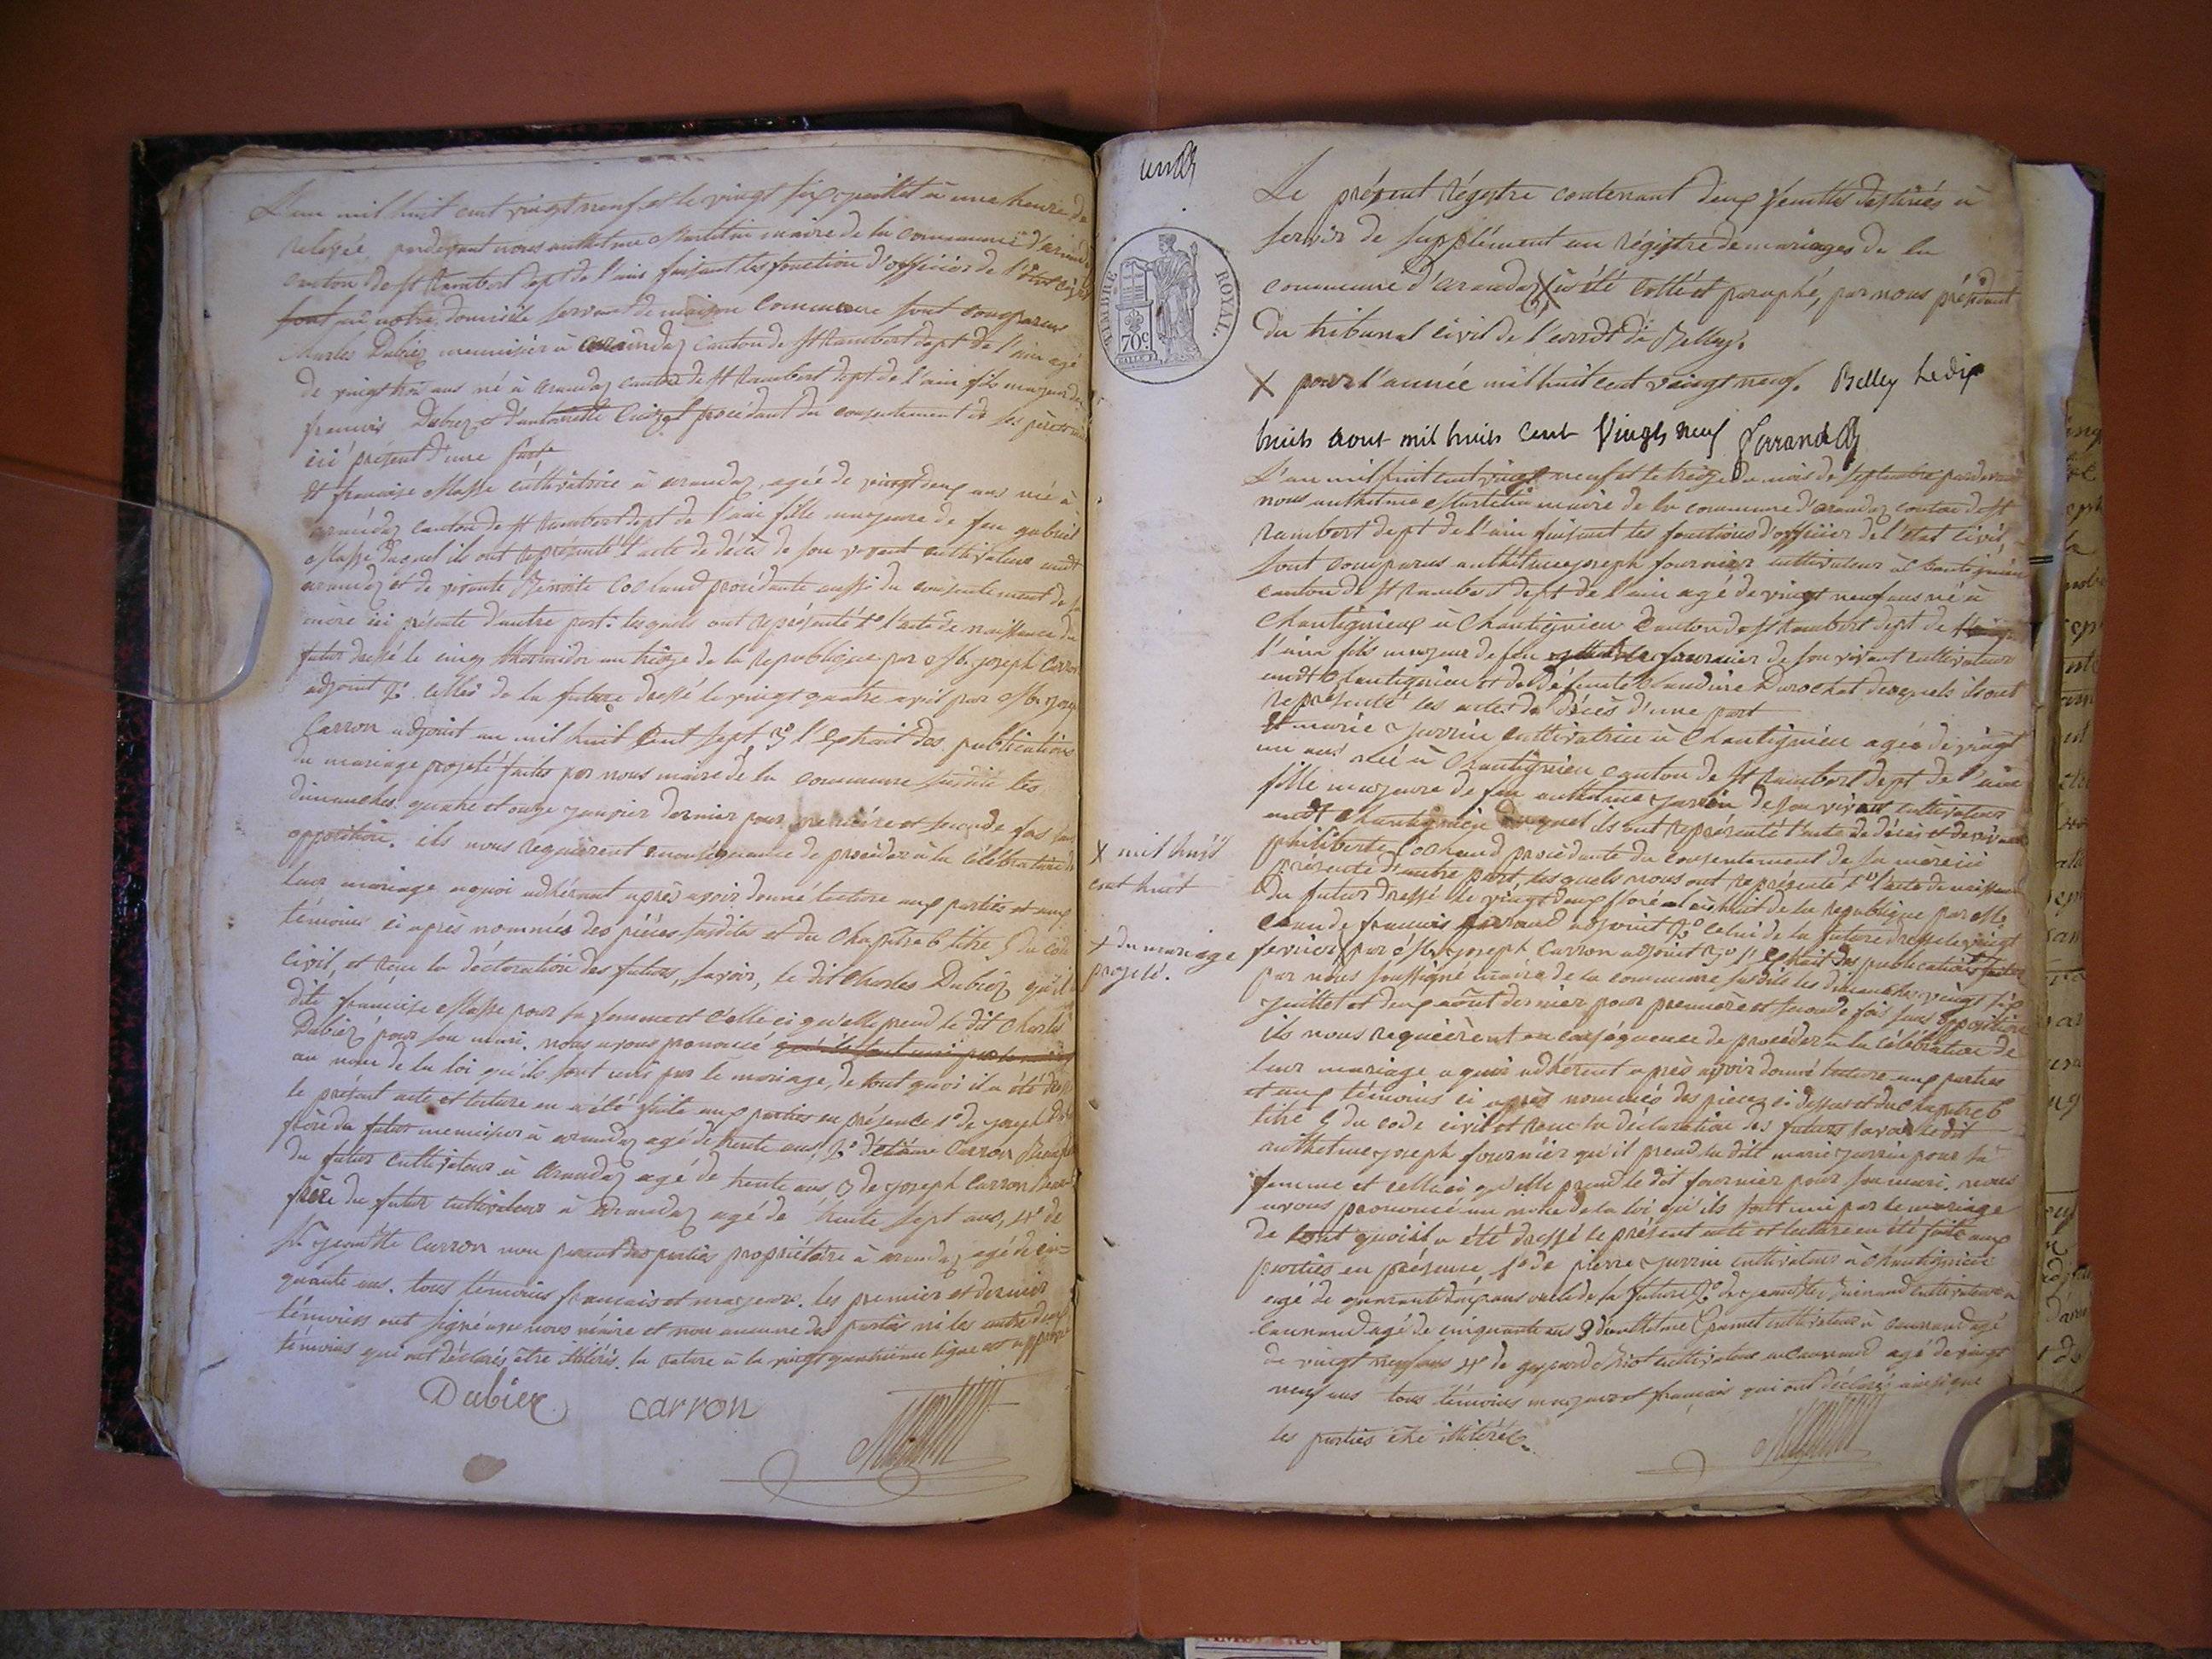 L'an mil huit cent vingt neuf et le vingt six juillet à une heure de
relevée, pardevant nous anthelme Martin maire de la commune d'arandaz
canton de St Rambert dept de l'ain faisant les fonction d'officier de l'état civil
sont au notre domicile servant de maison commune sont comparus
Charles Dubiez menuisier à arandaz canton de St Rambert dept de l'ain agé
de vingt trois ans né à arandaz canton de St Rambert dept de l'ain fils majeur de
francois Dubiez et d'antoinette procédant du consentement de ses père et mère
ici présent d'une part
Et francoise Masse cultivatrice à arandaz, agée de vingt deux ans né à
arandaz canton de St Rambert dept de l'ain fille majeure de feu gabriel
Masse duquel ils ont représenté l'acte de décès de son vivant cultivateur audt
arandaz et de vivante Benoite Cochand procédante aussi du consentement de sa
mère ici présente d'autre part. lesquels ont représenté 1º l'acte de naissance du
futur dressé le cinq thermidor an treize de la republique par Mr. joseph Carron
adjoint 2º celui de la future dressé le vingt quatre avril par Mr. joseph
Carron adjoint an mil huit cent sept 3º l'extrait des publications
du mariage projeté faites par nous maire de la commune susdite les
dimanches quatre et onze janvier dernier pour première et seconde fois sans
opposition. ils nous requièrent en conséquence de procéder à la célébration de
leur mariage aquoi adhérant après avoir donné lecture aux parties et aux
témoins ci après nommés des pièces susdites et du chapitre 6 titre 5 du code
civil, et recu la déclaration des futurs, savoir, le dit Charles Dubiez qu'il
dite francoise Masse pour sa femme et celle ci qu'elle prend le dit Charles
Dubiez pour son mari. nous avons prononcé qu'ils sont unis par le mariage
au nom de la loi qu'ils sont unis par le mariage, de tout quoi il a été dressé
le présent acte et lecture en a été faite aux parties en présence 1º de joseph Dubiez
frère du futur menuisier à arandaz agé de trente ans, 2º Carron
du futur cultivateur à arandaz agé de trente ans 3 de joseph Carron beau-
frère du futur cultivateur à arandaz agé de trente sept ans, 4º de
Carron non parent des parties propriétaire à arandaz agé de cin-
quante ans. tous témoins francais et majeurs. les premier et dernier
témoins ont signé avec nous maire et non aucune des parties ni les autre deux
témoins qui ont déclarés être illitérés. la rature à la vingt quatrième ligne est approuvé
Dubiez carron Martin
un
TIMBRE ROYAL.
70c.
Le présent Régistre contenant deux feuilles destinées à
servir de supplément au régistre de mariages de la
commune d'arandaz X a été cotté et paraphé, par nous président
du tribunal civil de l'arrondt de Belley.
X pour l'année mil huit cent vingt neuf. Belley Le dix
huit aout mil huit cent Vingt neuf
L'an mil huit cent vingt neuf et le treize du mois de septembre pardevant
nous anthelme Martin maire de la commune d'arandaz canton de St
Rambert dept de l'ain faisant les fonctions d'officier de l'état civil,
sont comparus anthelme joseph fournier cultivateur à Chantignieu
canton de St Rambert dept de l'ain agé de vingt neuf ans né à
Chantignieu à Chantignieu Canton de St Rambert dept de
l'ain fils majeur de feu fournier de son vivant cultivateur
audt Chantignieu et de défunte Claudine Durochat desquels ils ont
représenté les actes de décès d'une part
Et marie juvrin cultivatrice à Chantignieu agée de vingt
un ans née à Chantignieu canton de St Rambert dept de l'ain
fille majeure de feu anthelme juvrin de son vivant cultivateur
audt Chantignieu duquel ils ont représenté l'acte de décès et de vivante
philiberte Cochand procédante du consentement de sa mère ici
présente d'autre part, lesquels nous ont représenté 1º l'acte de naissance
du futur dressé le vingt deux floréal an huit de la republique par Mr
Claude francois adjoint 2º celui de la future dressé le vingt
fevrier X par Mr joseph Carron adjoint 3º l'extrait des publications faites
X mil huit
cent huit
+ du mariage
projeté.
par nous soussigné maire de la commune susdite les dimanches vingt six
juillet et deux août dernier pour première et seconde fois sans opposition
ils nous requièrent en conséquence de procéder à la célébration de
leur mariage aquoi adhérent après avoir donné lecture aux parties
et aux témoins ci après nommés des pièces ci dessus et du chapitre 6
titre 5 du code civil et recu la déclaration des futurs savoir le dit
anthelme joseph fournier qu'il prend la dite marie juvrin pour sa
femme et celle ci qu'elle prend le dit fournier pour son mari. nous
avons prononcé au nom de la loi qu'ils sont uni par le mariage
de tout quoi il a été dressé le présent acte et lecture en été faite aux
parties en présence 1º de pierre juvrin cultivateur à Chantignieu
agé de quarante deux ans oncle de la future 2º de cultivateur à
agé de cinquante ans 3 d'anthelme cultivateur à agé
de vingt neuf ans 4º de gaspard cultivateur agé de vingt
neuf ans tous témoins majeurs et francais qui ont déclaré ainsi que
les parties être illitérés. Martin